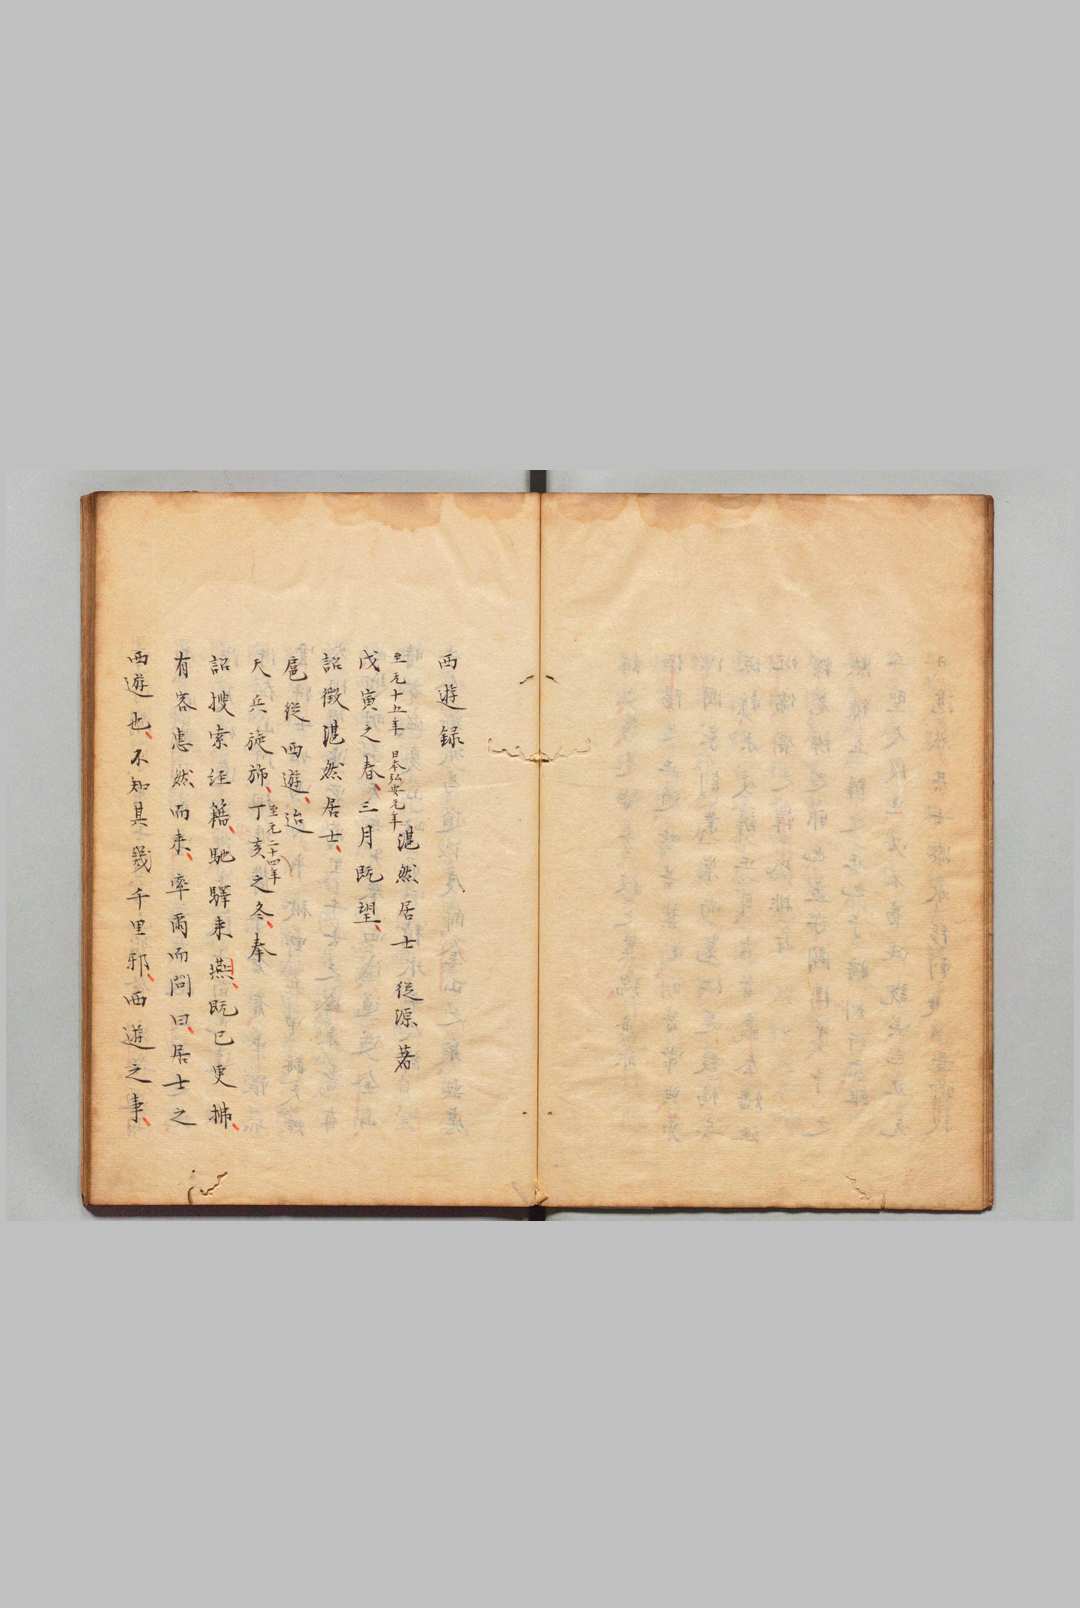 西遊録
湛然居士從源著
至元十五年 日本弘安元年
戊寅之春、三月既望、
詔徴湛然居士、
扈從西遊、迨
天兵旋斾、丁亥之冬、奉
至元二十四年
詔搜索経籍、馳驛来燕、既已更拂、
有客惠然而来、率爾而問曰、居士之
西遊也、不知其幾千里邪、西遊之事、